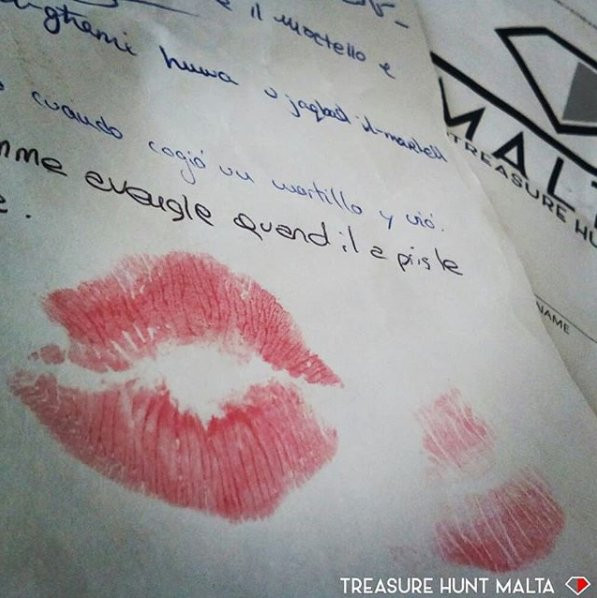 e il martello e
-għami huwa u jaqbad il-martell
cuando cogió un martillo y vió.
mme aveugle quand il a pris le
e.
MALT
TREASURE HU
NAME
TREASURE HUNT MALTA